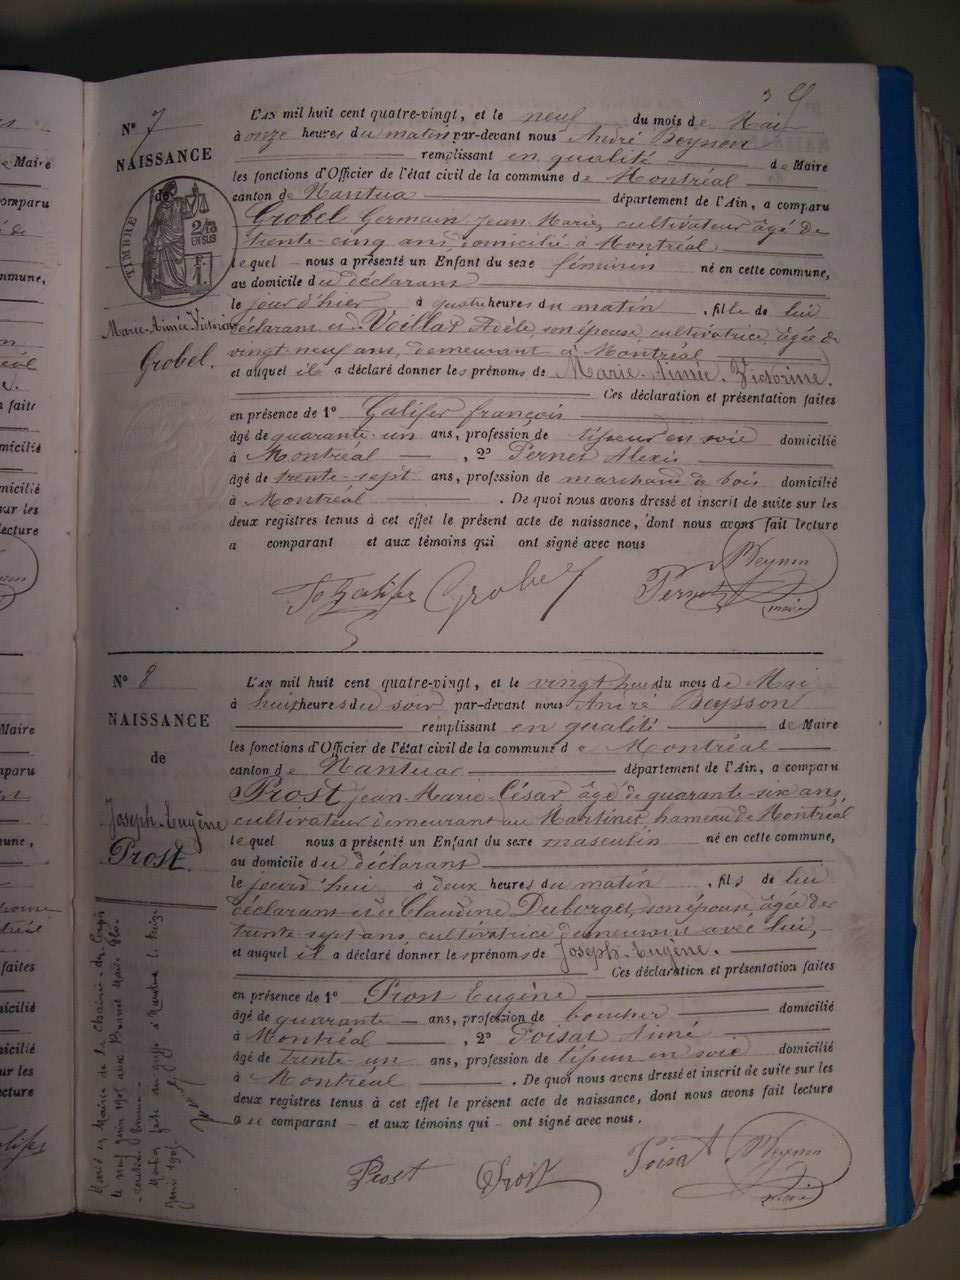 N° 7
NAISSANCE
de
TIMBRE
2/10
EN SUS
Marie-Aimée-Victorine
Grobel.
L'AN mil huit cent quatre-vingt, et le neuf du mois de Mai
à onze heures du matin par-devant nous André Beysson
remplissant en qualité de Maire
les fonctions d'Officier de l'état civil de la commune de Montréal
canton de Nantua département de l'Ain, a comparu
Grobel Germain Jean-Marie, cultivateur âgé de
trente-cinq ans domicilié à Montréal
lequel nous a présenté un Enfant du sexe féminin né en cette commune,
au domicile du déclarant
le jour d'hier à quatre heures du matin, fille de lui
déclarant et de Adèle, son épouse, cultivatrice, âgée de
vingt-neuf ans, demeurant à Montréal
et auquel il a déclaré donner les prénoms de Marie-Aimée-Victorine.
Ces déclaration et présentation faites
en présence de 1° Galifer françois
âgé de quarante-un ans, profession de tisseur en soie domicilié
à Montréal, 2° Pernet Alexis
âgé de trente-sept ans, profession de marchand de bois domicilié
à Montréal. De quoi nous avons dressé et inscrit de suite sur les
deux registres tenus à cet effet le présent acte de naissance, dont nous avons fait lecture
a comparant et aux témoins qui ont signé avec nous
Galifer Grobel Pernet Beysson
maire
N° 8
NAISSANCE
de
Joseph-Eugène
Prost.
L'AN mil huit cent quatre-vingt, et le vingt-huit du mois de Mai
à huit heures du soir par-devant nous André Beysson
remplissant en qualité de Maire
les fonctions d'Officier de l'état civil de la commune de Montréal
canton de Nantua département de l'Ain, a comparu
Prost Jean-Marie-César âgé de quarante-six ans,
cultivateur demeurant au Martinet hameau de Montréal
lequel nous a présenté un Enfant du sexe masculin né en cette commune,
au domicile du déclarant
le jourd'hui à deux heures du matin, fils de lui
déclarant et de Claudine Duborget, son épouse, âgée de
trente-sept ans, cultivatrice demeurant avec lui,
et auquel il a déclaré donner les prénoms de Joseph-Eugène.
Ces déclaration et présentation faites
en présence de 1° Prost Eugène
âgé de quarante ans, profession de boucher domicilié
à Montréal, 2° Poisat Aimé
âgé de trente-un ans, profession de tisseur en soie domicilié
à Montréal. De quoi nous avons dressé et inscrit de suite sur les
deux registres tenus à cet effet le présent acte de naissance, dont nous avons fait lecture
a ce comparant et aux témoins qui ont signé avec nous.
Prost Prost Poisat Beysson
maire
Marié en Mairie de
le neuf juin 1905 avec Marie
Mention faite au greffe à Nantua le treize
Juin 1905.